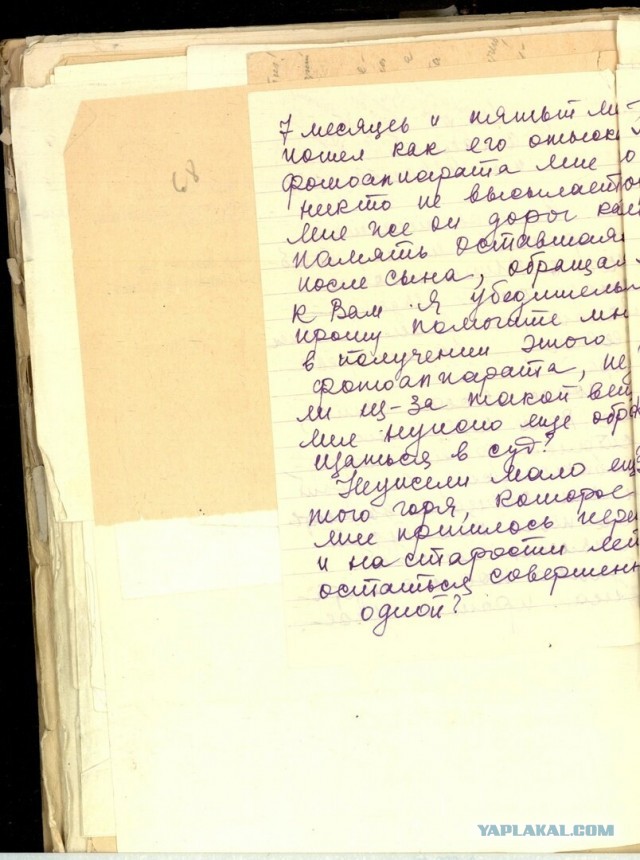 68
7 месяцев и пятый ме-
пошел как его отыск
фотоаппарата мне о
никто не высылает
Мне же он дорог как
память оставшая
после сына, обращая
к Вам я убедитель
прошу помогите мн
в получении этого
фотоаппарата, не
ли из-за такой вещ
мне нужно еще обра
щаться в суд?
Неужели мало ещё
того горя, которое
мне пришлось пере
и на старости лет
остаться совершен
одной?
YAPLAKAL.COM